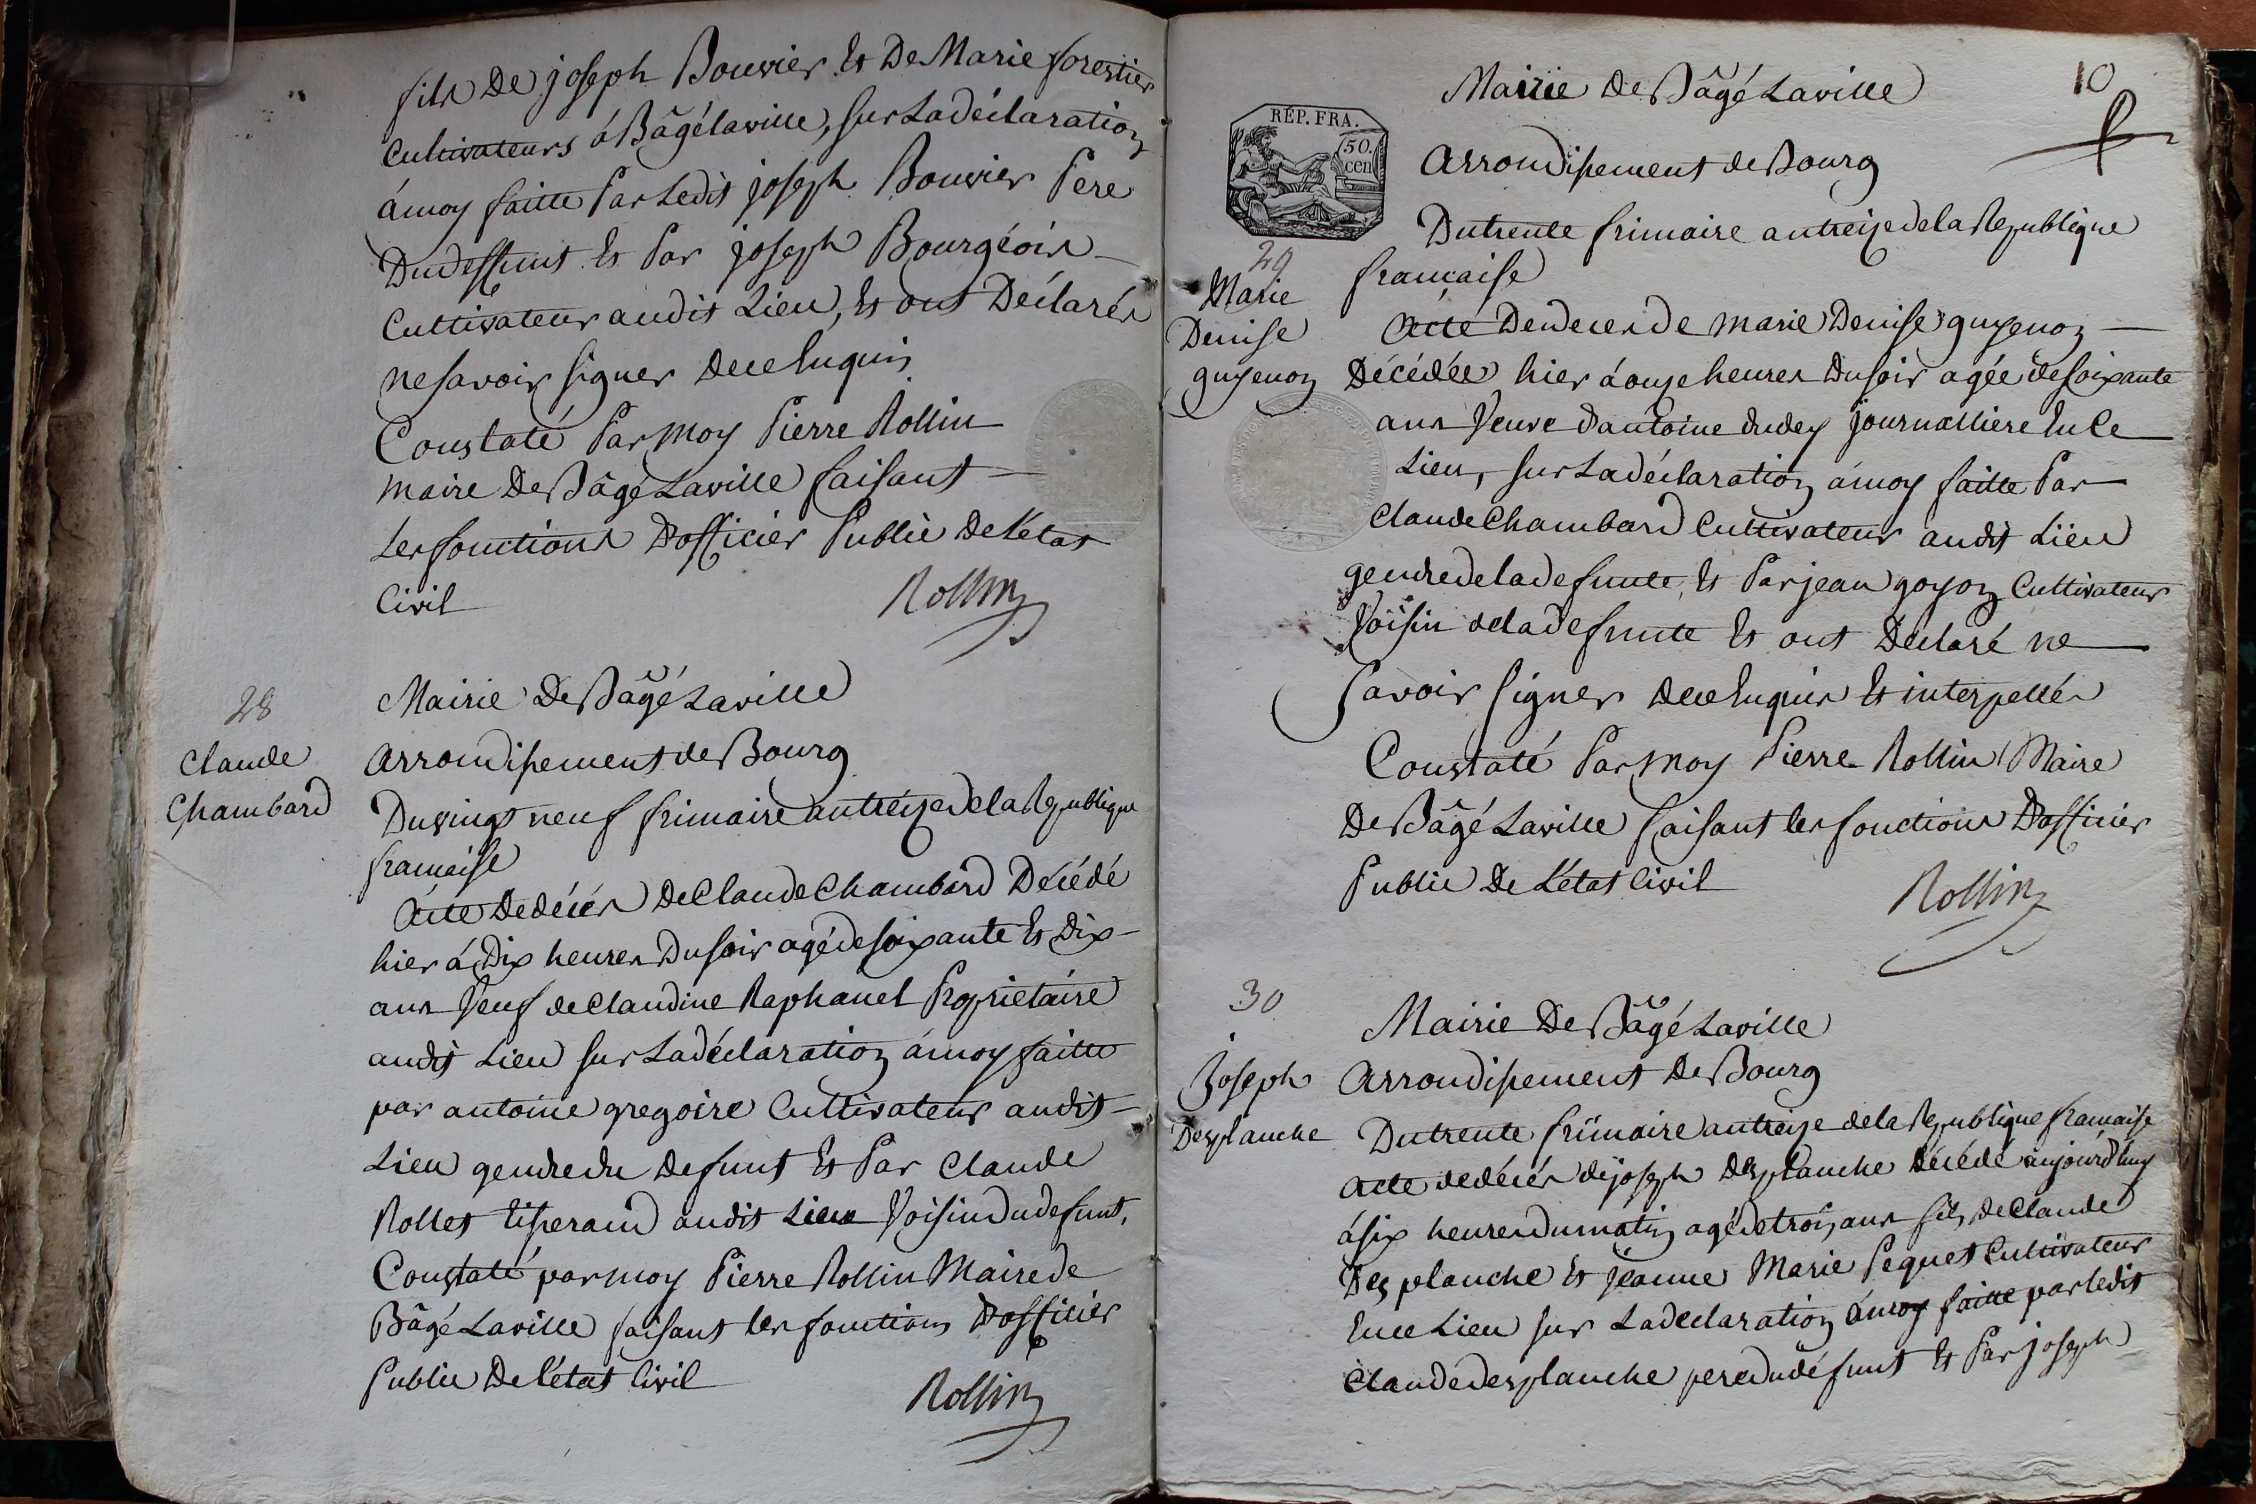 fils De joseph Bouvier Et De Marie forestier
Cultivateurs á Bâgélaville, sur La déclaration
á moy faitte Par Ledit joseph Bouvier Pere
Du deffunt Et Par joseph Bourgéois
Cultivateur audit Lieu, Et ont Déclarés
ne savoir signer De ce Enquis
Constaté Par moy Pierre Rollin
maire De Bâgé Laville faisant
Les fonctions D'officier Public De L'état
Civil
Rollin
28
Claude
Chambard
Mairie De Bâgé Laville
arrondissement de Bourg
Du vingt neuf frimaire an treize de la Republique
francaise
Acte De décés De Claude Chambard Décédé
hier á Dix heures Du soir agé de soixante Et Dix
ans Veuf de Claudine Raphanel Propriétaire
audit Lieu sur La déclaration á moy faitte
par antoine gregoire Cultivateur audit
Lieu gendre du Defunt Et Par Claude
Rollet Tisserand audit Lieu Voisin Du defunt,
Constaté par moy Pierre Rollin Maire de
Bâgé Laville faisant les fonctions D'officier
Public De L'état Civil
Rollin
10
Mairie De Bâgé Laville
RÉP. FRA.
50.
cen
arrondissement de Bourg
Du trente frimaire an treize de la Republique
francaise
29
Marie
Denise
guyenon
Acte De deces de marie Denise guyenon
Décédée hier á onze heures Du soir agée de soixante
ans Veuve d'antoine dudey journalliere En Ce
Lieu, sur La déclaration á moy faitte Par
Claude Chambard Cultivateur audit Lieu
gendre de la defunte, Et Par jean goyon Cultivateur
Voisin de la defunte Et ont Déclaré ne
savoir signer De ce Enquis Et interpellés
Constaté Par moy Pierre Rollin Maire
De Bâgé Laville faisant les fonctions D'officier
Public De L'état Civil
Rollin
30
Joseph
Desplanche
Mairie De Bâgé Laville
arrondissement De Bourg
Du trente frimaire an treize de la Republique francaise
acte de décés de joseph Desplanche Décédé aujourd'huy
á six heures du matin agé de trois ans fils De Claude
Desplanche Et jeanne Marie Pequet Cultivateur
En ce Lieu sur La declaration á moy faitte par ledit
Claude desplanche pere du défunt Et Par joseph